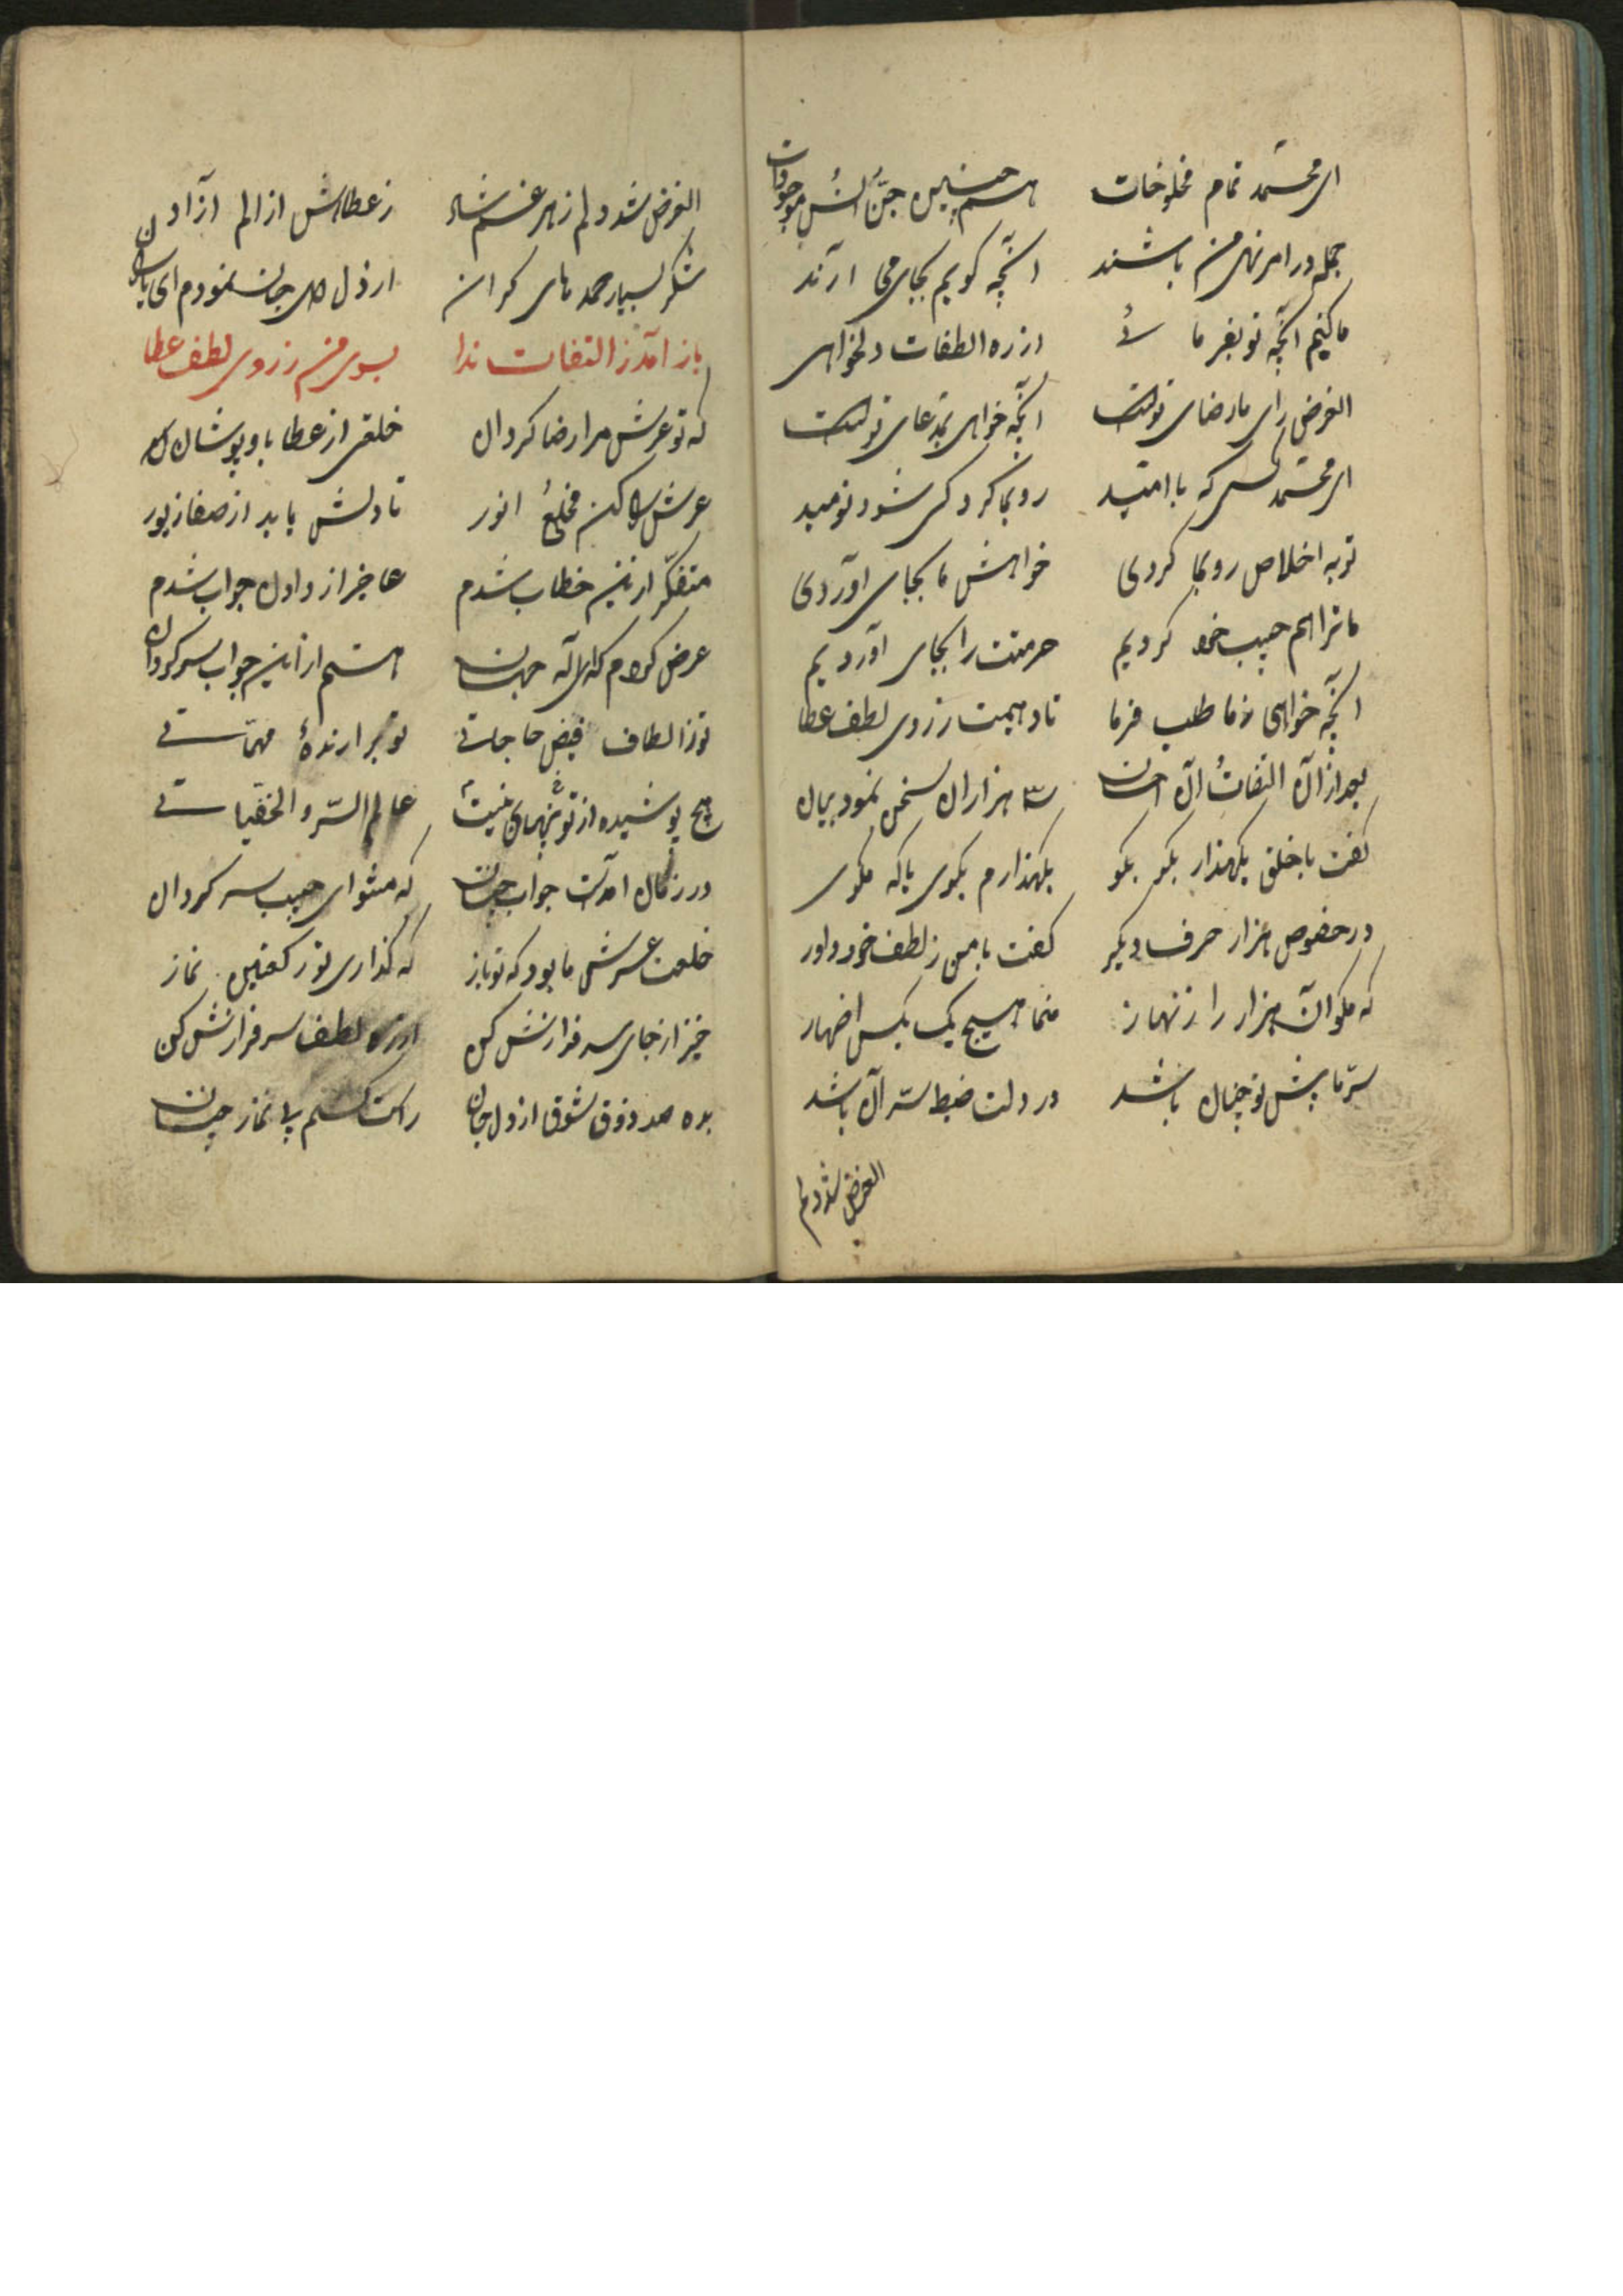 ای محمد تمام مخلوخات همچنین جن انس موجودات
جمله در امر نهی من باشند آنچه کویم بجای می آرند
ما کنیم آنچه تو بفرمائی از ره الطفات دلخواهی
الغرض رای ما رضای تواست آنچه خواهی مدعای تواست
ای محمد کسی که با امید رو بما کرد کی شود نومید
تو به اخلاص رو بما کردی خواهش ما بجای آوردی
ما ترا هم حبیب خود کردیم حرمتت را بجای آوردیم
آنچه خواهی ز ما طلب فرما تا دهیمت ز روی لطف عطا
بعد از آن التفات آن احسان سه هزاران سخن نمود بیان
کفت با خلق یکهذار بکو بکو یکهذارم بکوی یا که مکوی
در خصوص هزار حرف دیکر کفت با من ز لطف خود داور
که مکو آن هزار را زنهار منما هیچ یک بکس اضهار
سر ما پیش تو چنان باشد در دلت ضبط سر آن باشد
الغرض شد دلم
الغرض شد دلم ز هر غم شاد ز عطاهاش از الم آزاد
شکر بسیار حمدهای کران از دل جان نمودم
باز آمد ز التفات ندا بسوی من ز روی لطف عطا
که تو عرش مرا رضا کردان خلقی از عطا باو پوشان
عرش را کن مخلع انور تا دلش یابد از صفا زیور
متفکر از این خطاب شدم عاجز از داول جواب شدم
عرض کردم که ای اله جهان هستم از این جواب سرکردان
تو ز الطاف فیض حاجاتی تو برارنده مهماتی
هیچ پوشیده از تو پنهان نیست عالم السر و الخفیاتی
در زمان آمدت جواب چنان که مشو ای حبیب سرکردان
خلعت عرش ما بود که تو باز که کذاری تو رکعتین نماز
خیز از جای سرفرازش کن از ره لطف سرفرازش کن
به صد ذوق شوق از دل جان راست کشتم پی نماز چنان